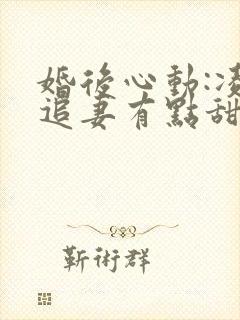 婚後心動:凌
追妻有點甜
靳術群